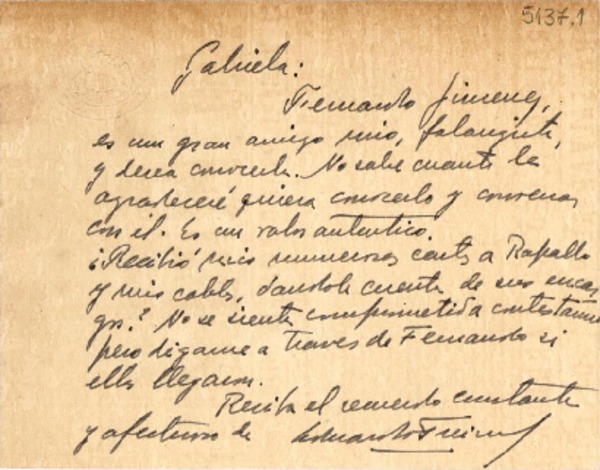 5137.1
Gabriela:
Fernando Jimenez,
es un gran amigo mio, falangista,
y desea conocerla. No sabe cuanto le
agradeceré quiera conocerlo y conversar
con él. Es un valor autentico.
¿Recibió mis numerosas cartas a Rapallo
y mis cables, dandole cuenta de sus encar
gos? No se sienta comprometida contestarme
pero digame a traves de Fernando si
ellas llegaron.
Reciba el recuerdo constante
y afectuoso de Eduardo Frei